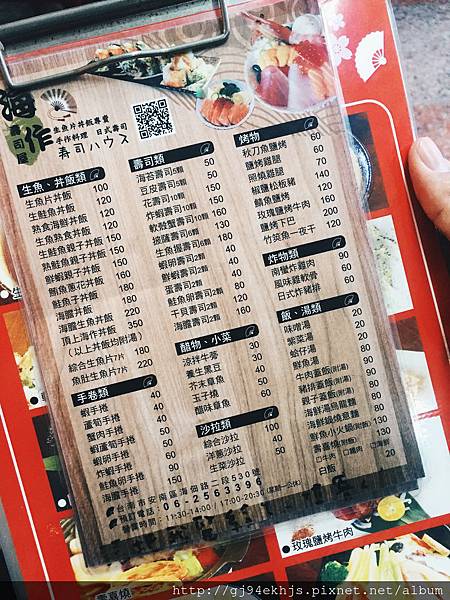 海作
壽司屋
生魚片丼飯專賣
手作料理 日式壽司
寿司ハウス
生魚、丼飯類
生魚片丼飯 100
生鮭魚丼飯 120
熟食海鮮飯 120
生魚熟食丼飯 120
生鮭魚親子丼飯 150
熟鮭魚親子丼飯 150
鮮蝦親子丼飯 150
鮪魚蔥花丼飯 160
鮭魚子丼飯 180
海膽丼飯
海膽生魚丼飯 220
頂上海作丼飯 350
(以上丼飯均附湯)
綜合生魚片7片 180
魚肚生魚片7片 220
手卷類
蝦手卷 40
蘆筍手卷 40
蟹肉手卷 40
蝦蘆筍手卷 50
蝦卵手卷 60
炸蝦手卷 90
鮭魚卵手卷 150
海膽手卷
壽司類
海苔壽司5顆 50
豆皮壽司5顆 50
花壽司10顆
炸蝦壽司10顆 130
軟殼蟹壽司10顆 160
綜合壽司6顆 130
生魚握壽司6顆 180
鮮蝦壽司2顆 50
蝦蛋壽司2顆 50
蛋壽司2顆 40
鮭魚卵壽司2顆 120
干貝壽司2顆 160
海膽壽司2顆
醋物、小菜
涼拌牛蒡 30
養生黑豆 30
芥末章魚 50
玉子燒 50
醋味章魚 60
沙拉類
綜合沙拉 40
洋蔥沙拉 40
生菜沙拉 40
烤物
秋刀魚鹽烤 60
鹽烤雞腿 60
照燒雞腿 70
椒鹽松板豬
鯖魚鹽烤
玫瑰鹽烤牛肉 160
鹽烤下巴
竹筴魚一夜干 120
炸物類
南蠻炸雞肉
風味雞軟骨 60
日式炸豬排 80
飯、湯類
味噌湯 20
紫菜湯 20
蛤仔湯 50
鮮魚湯
牛肉蓋飯(附湯)
豬排蓋飯(附湯)
親子蓋飯(附湯) 80
海鮮湯烏龍麵 80
海鮮鍋燒意麵 80
鮮魚小火鍋(附飯) 130
壽喜燒(附飯) 130
□牛肉 □豬肉 □海鮮
白飯
台南市安南區海佃路二段530號
預訂電話：06-2563396
營業時間：11:30-14:00 / 17:00-20:30 (星期一公休)
玫瑰鹽烤牛肉
壽喜燒
http://gj94ekhjs.pixnet.net/album